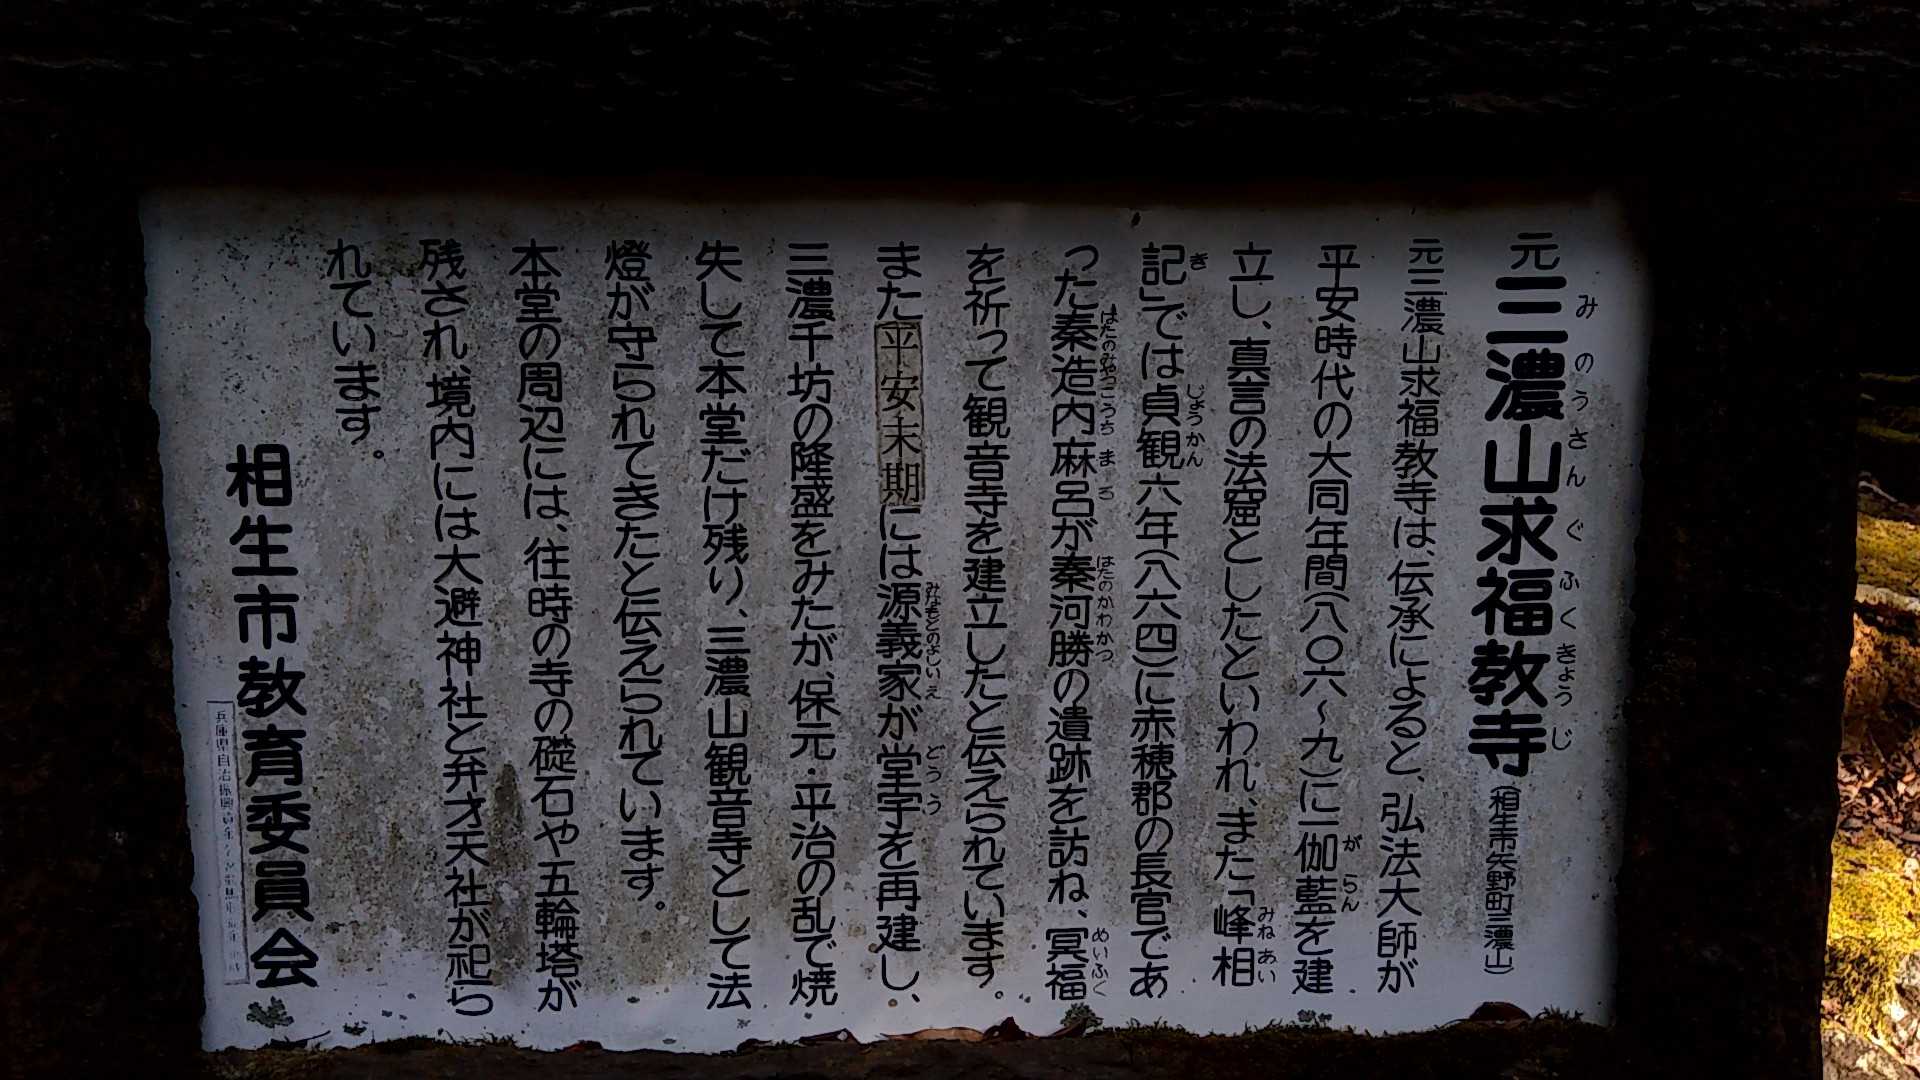 元三濃山求福教寺（相生市矢野町三濃山）
みのうさんぐふくきょうじ
元三濃山求福教寺は、伝承によると、弘法大師が
平安時代の大同年間（八〇六～九）に一伽藍を建
がらん
立し、真言の法窟としたといわれ、また「峰相
みねあい
記」では貞観六年（八六四）に赤穂郡の長官であ
き じょうかん
った秦造内麻呂が秦河勝の遺跡を訪ね、冥福
はたのみやつこうちまろ はたのかわかつ めいふく
を祈って観音寺を建立したと伝えられています。
また平安末期には源義家が堂宇を再建し、
みなもとのよしいえ どうう
三濃千坊の隆盛をみたが、保元・平治の乱で焼
失して本堂だけ残り、三濃山観音寺として法
燈が守られてきたと伝えられています。
本堂の周辺には、往時の寺の礎石や五輪塔が
残され、境内には大避神社と弁才天社が祀ら
れています。
相生市教育委員会
兵庫県自治振興